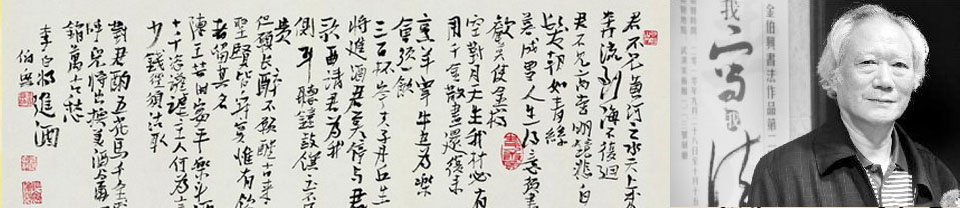 君不見黃河之水天上來
奔流到海不復迴
君不見高堂明鏡悲白
髮朝如青絲
暮成雪人生得意須盡
歡莫使金樽
空對月天生我材必有
用千金散盡還復來
烹羊宰牛且為樂
會須飲
三百杯岑夫子丹丘生
將進酒君莫停與君
歌一曲請君為我
側耳聽鐘鼓饌玉不足
貴
但願長醉不願醒古來
聖賢皆寂寞惟有飲
者留其名
陳王昔時宴平樂斗酒
十千恣讙謔主人何為言
少錢徑須沽取
對君酌五花馬千金裘
呼兒將出換美酒與爾
銷萬古愁
李白將進酒
伯興
金伯興書法作品第
我寫我法